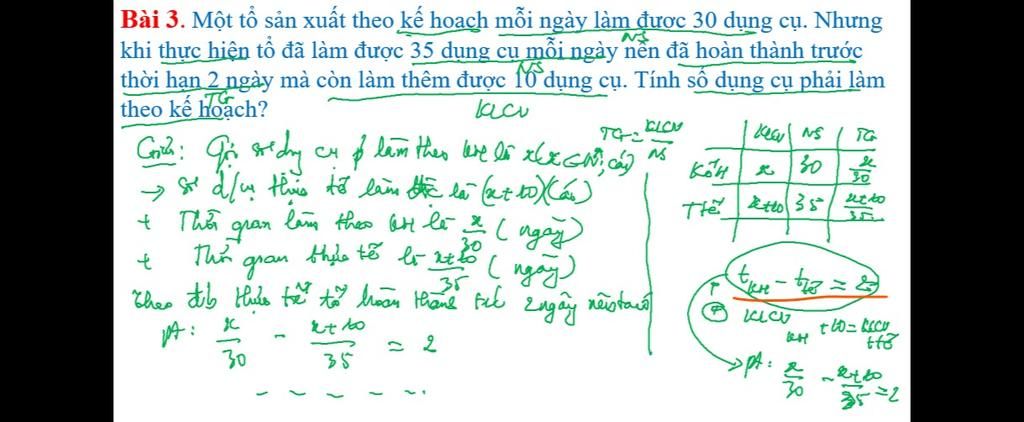 Bài 3. Một tổ sản xuất theo kế hoạch mỗi ngày làm được 30 dụng cụ. Nhưng
khi thực hiện tổ đã làm được 35 dụng cụ mỗi ngày nên đã hoàn thành trước
thời hạn 2 ngày mà còn làm thêm được 10 dụng cụ. Tính số dụng cụ phải làm
theo kế hoạch?
NS
NS
TG
KLCV
Giải: Gọi số dụng cụ p làm theo KH là x (x ∈ N*, cái)
→ số d/cụ thực tế làm đc là (x+10) (cái)
+ Thời gian làm theo KH là x/30 (ngày)
+ Thời gian thực tế là x+10/35 (ngày)
Theo đb thực tế tổ hoàn thành trc 2 ngày nên ta có
pt: x/30 - x+10/35 = 2
TG = KLCV/NS
KLCV NS TG
KếH x 30 x/30
TTế x+10 35 x+10/35
t KH - t tế = 2
KLCV KH + 10 = KLCV ttế
pt: x/30 - x+10/35 = 2